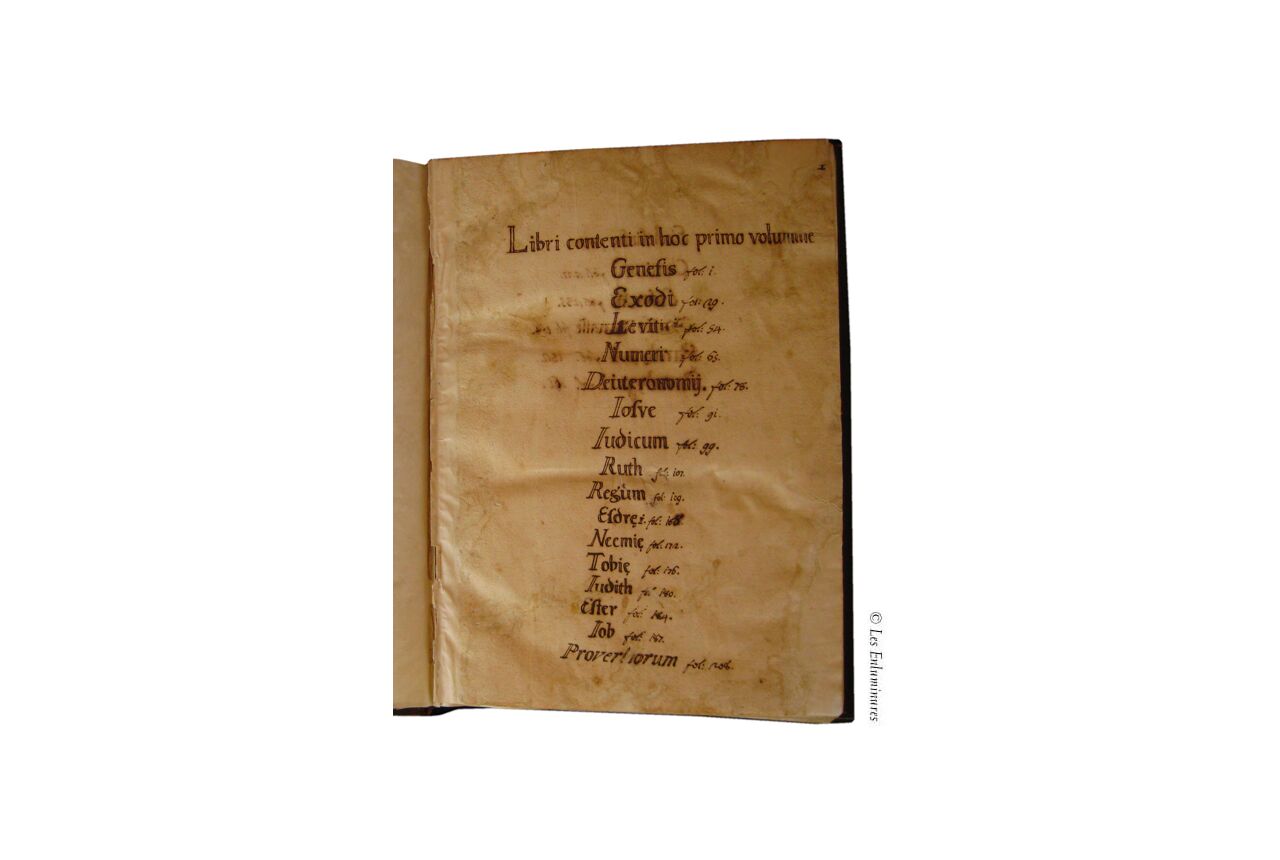 Libri contenti in hoc primo volumine
Geneſis fol: 1.
Exodi fol: 29.
Levitici fol: 54.
Numeri fol: 65.
Deuteronomij. fol: 78.
Ioſve fol: 91.
Iudicum fol: 99.
Ruth fol: 107.
Regum fol: 109.
Eſdrę fol:
Neemię fol: 172.
Tobię fol: 176.
Iudith fol: 180.
Eſter fol: 184.
Iob fol: 187.
Proverbiorum fol: 208.
© Les Enluminures